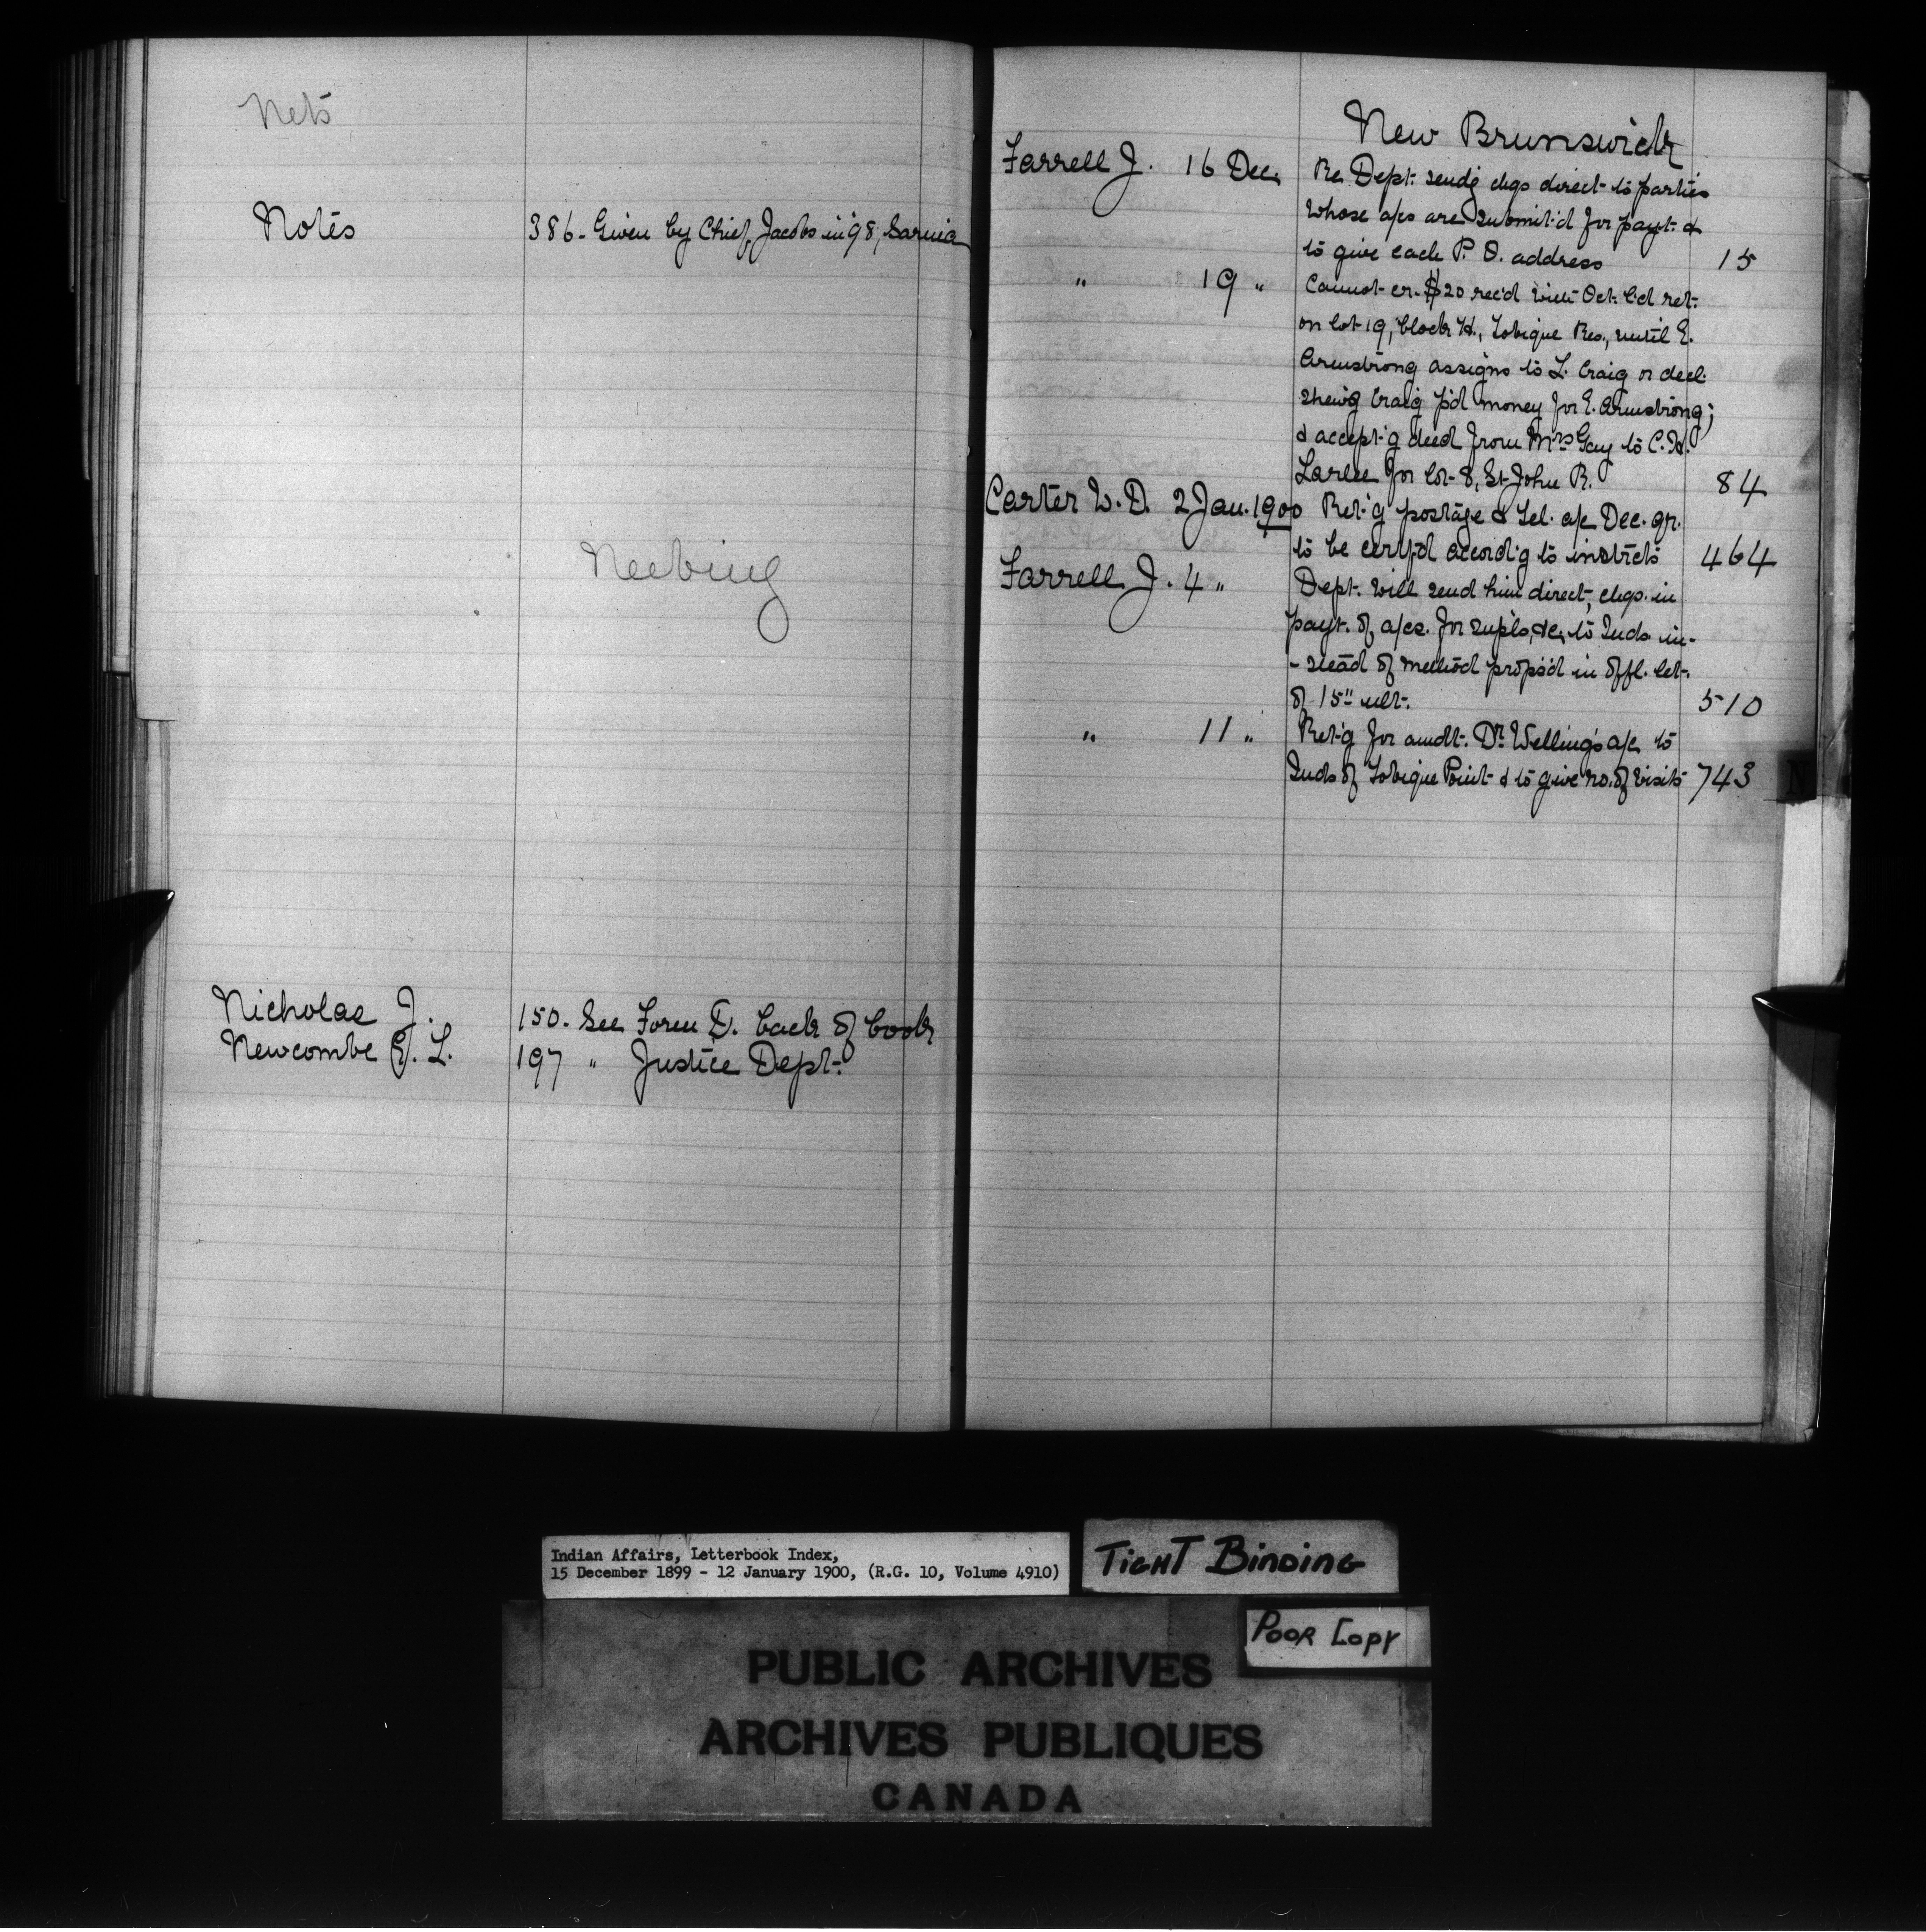 Nets
Notes 386. Given by Chief Jacobs in '98, Sarnia
Neebing
Nicholas J. 150. See Foren D. back of book
Newcombe E. L. 197 " Justice Dept.
New Brunswick
Farrell J. 16 Dec. Re Dept. send'g chqs direct to parties
whose a/cs are submit'd for payt. &
to give each P. O. address 15
" 19 " Cannot cr. $20 rec'd with Oct. l'd ret.
on lot 19, block H., Tobique Res., until E.
Armstrong assigns to L. Craig or decl.
shew'g Craig p'd money for E. Armstrong;
& accept'g deed from Mrs Gay to C. H.
Larlee for lot 8, St John R. 84
Carter W. D. 2 Jan. 1900 Ret'g postage & tel. a/c Dec. qr.
to be certf'd accord'g to instrcts 464
Farrell J. 4 " Dept. will send him direct, chqs. in
payt. of a/cs. for supls, &c, to Inds in-
-stead of method prop's'd in offl. let.
of 15" ult. 510
" 11 " Ret'g for amdt. Dr. Welling's a/c to
Inds of Tobique Point & to give no. of visits 743
N
Indian Affairs, Letterbook Index,
15 December 1899 - 12 January 1900, (R.G. 10, Volume 4910)
TIGHT BINDING
POOR COPY
PUBLIC ARCHIVES
ARCHIVES PUBLIQUES
CANADA